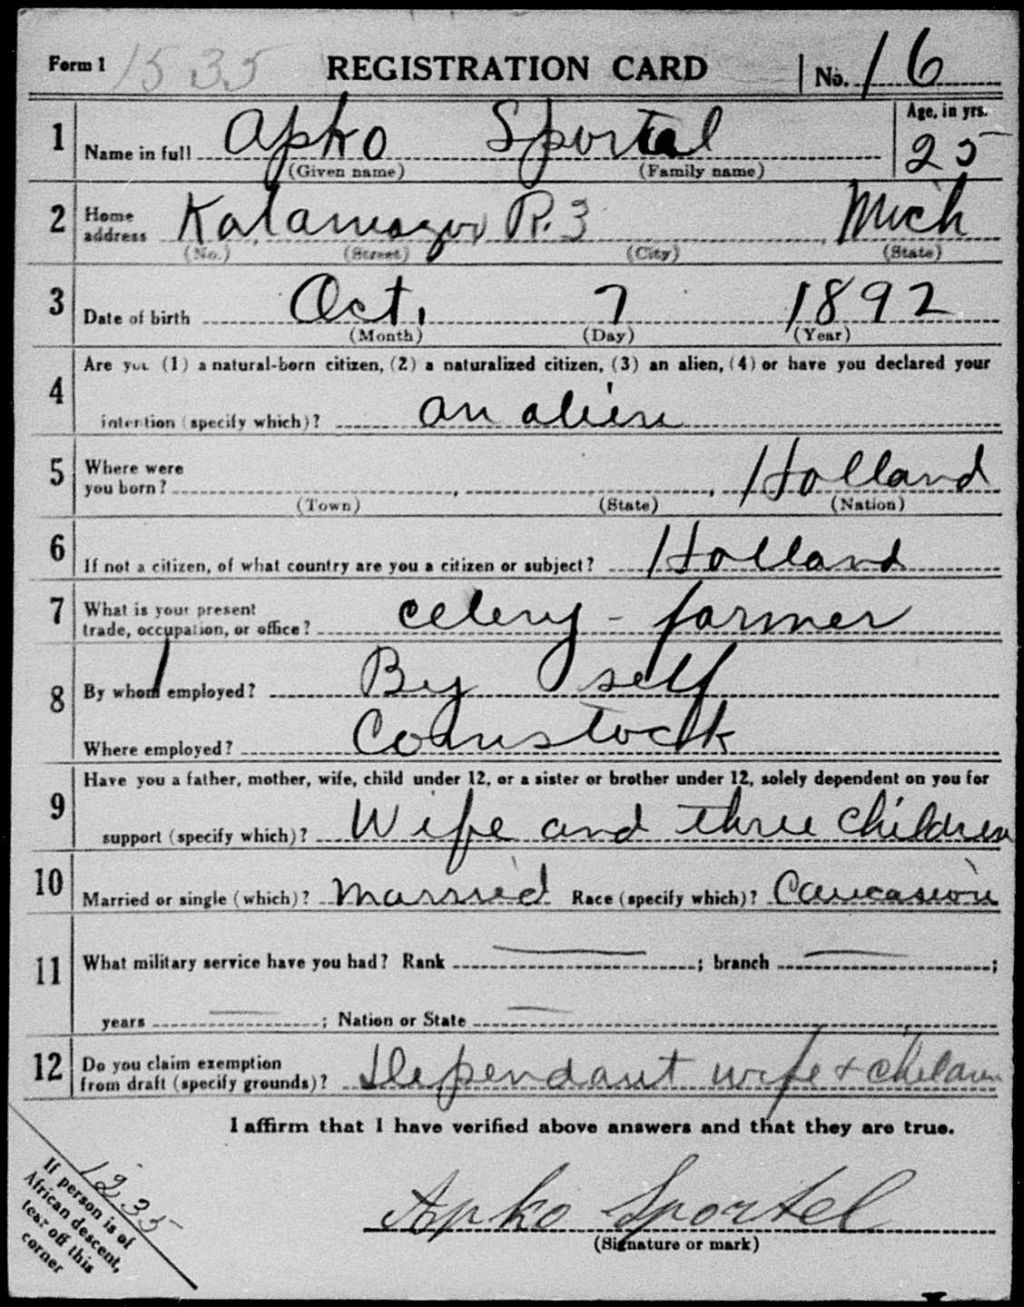 Form 1 1535 REGISTRATION CARD No. 16
1 Name in full Apko Sportal Age, in yrs. 25
(Given name) (Family name)
2 Home address Kalamazoo R.3 Mich
(No.) (Street) (City) (State)
3 Date of birth Oct. 7 1892
(Month) (Day) (Year)
4 Are you (1) a natural-born citizen, (2) a naturalized citizen, (3) an alien, (4) or have you declared your
intention (specify which)? an alien
5 Where were
you born? Holland
(Town) (State) (Nation)
6 If not a citizen, of what country are you a citizen or subject? Holland
7 What is your present
trade, occupation, or office? celery - farmer
8 By whom employed? By self
Where employed? Comstock
9 Have you a father, mother, wife, child under 12, or a sister or brother under 12, solely dependent on you for
support (specify which)? Wife and three children
10 Married or single (which)? Married Race (specify which)? Caucasion
11 What military service have you had? Rank ; branch ;
years ; Nation or State
12 Do you claim exemption
from draft (specify grounds)? Dependant wife + children
I affirm that I have verified above answers and that they are true.
Apko Sportel
(Signature or mark)
1235
If person is of
African descent,
tear off this
corner